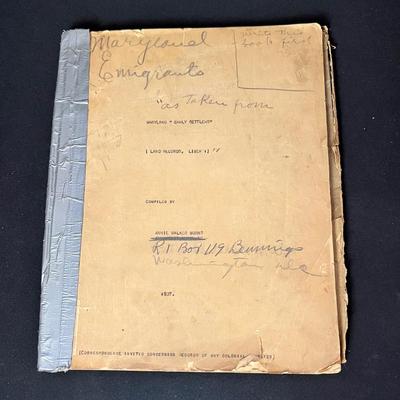 Maryland
Emigrants
write this
book first
"as Taken from
MARYLAND "EARLY SETTLERS"
( LAND RECORDS, LIBER 1) "
COMPILED BY
ANNIE WALKER BURNS
Rt Box 119 Bennings
Washington, D.C.
1937.
(CORRESPONDENCE INVITED CONCERNING RECORDS OF ANY COLONIAL FAMILIES)